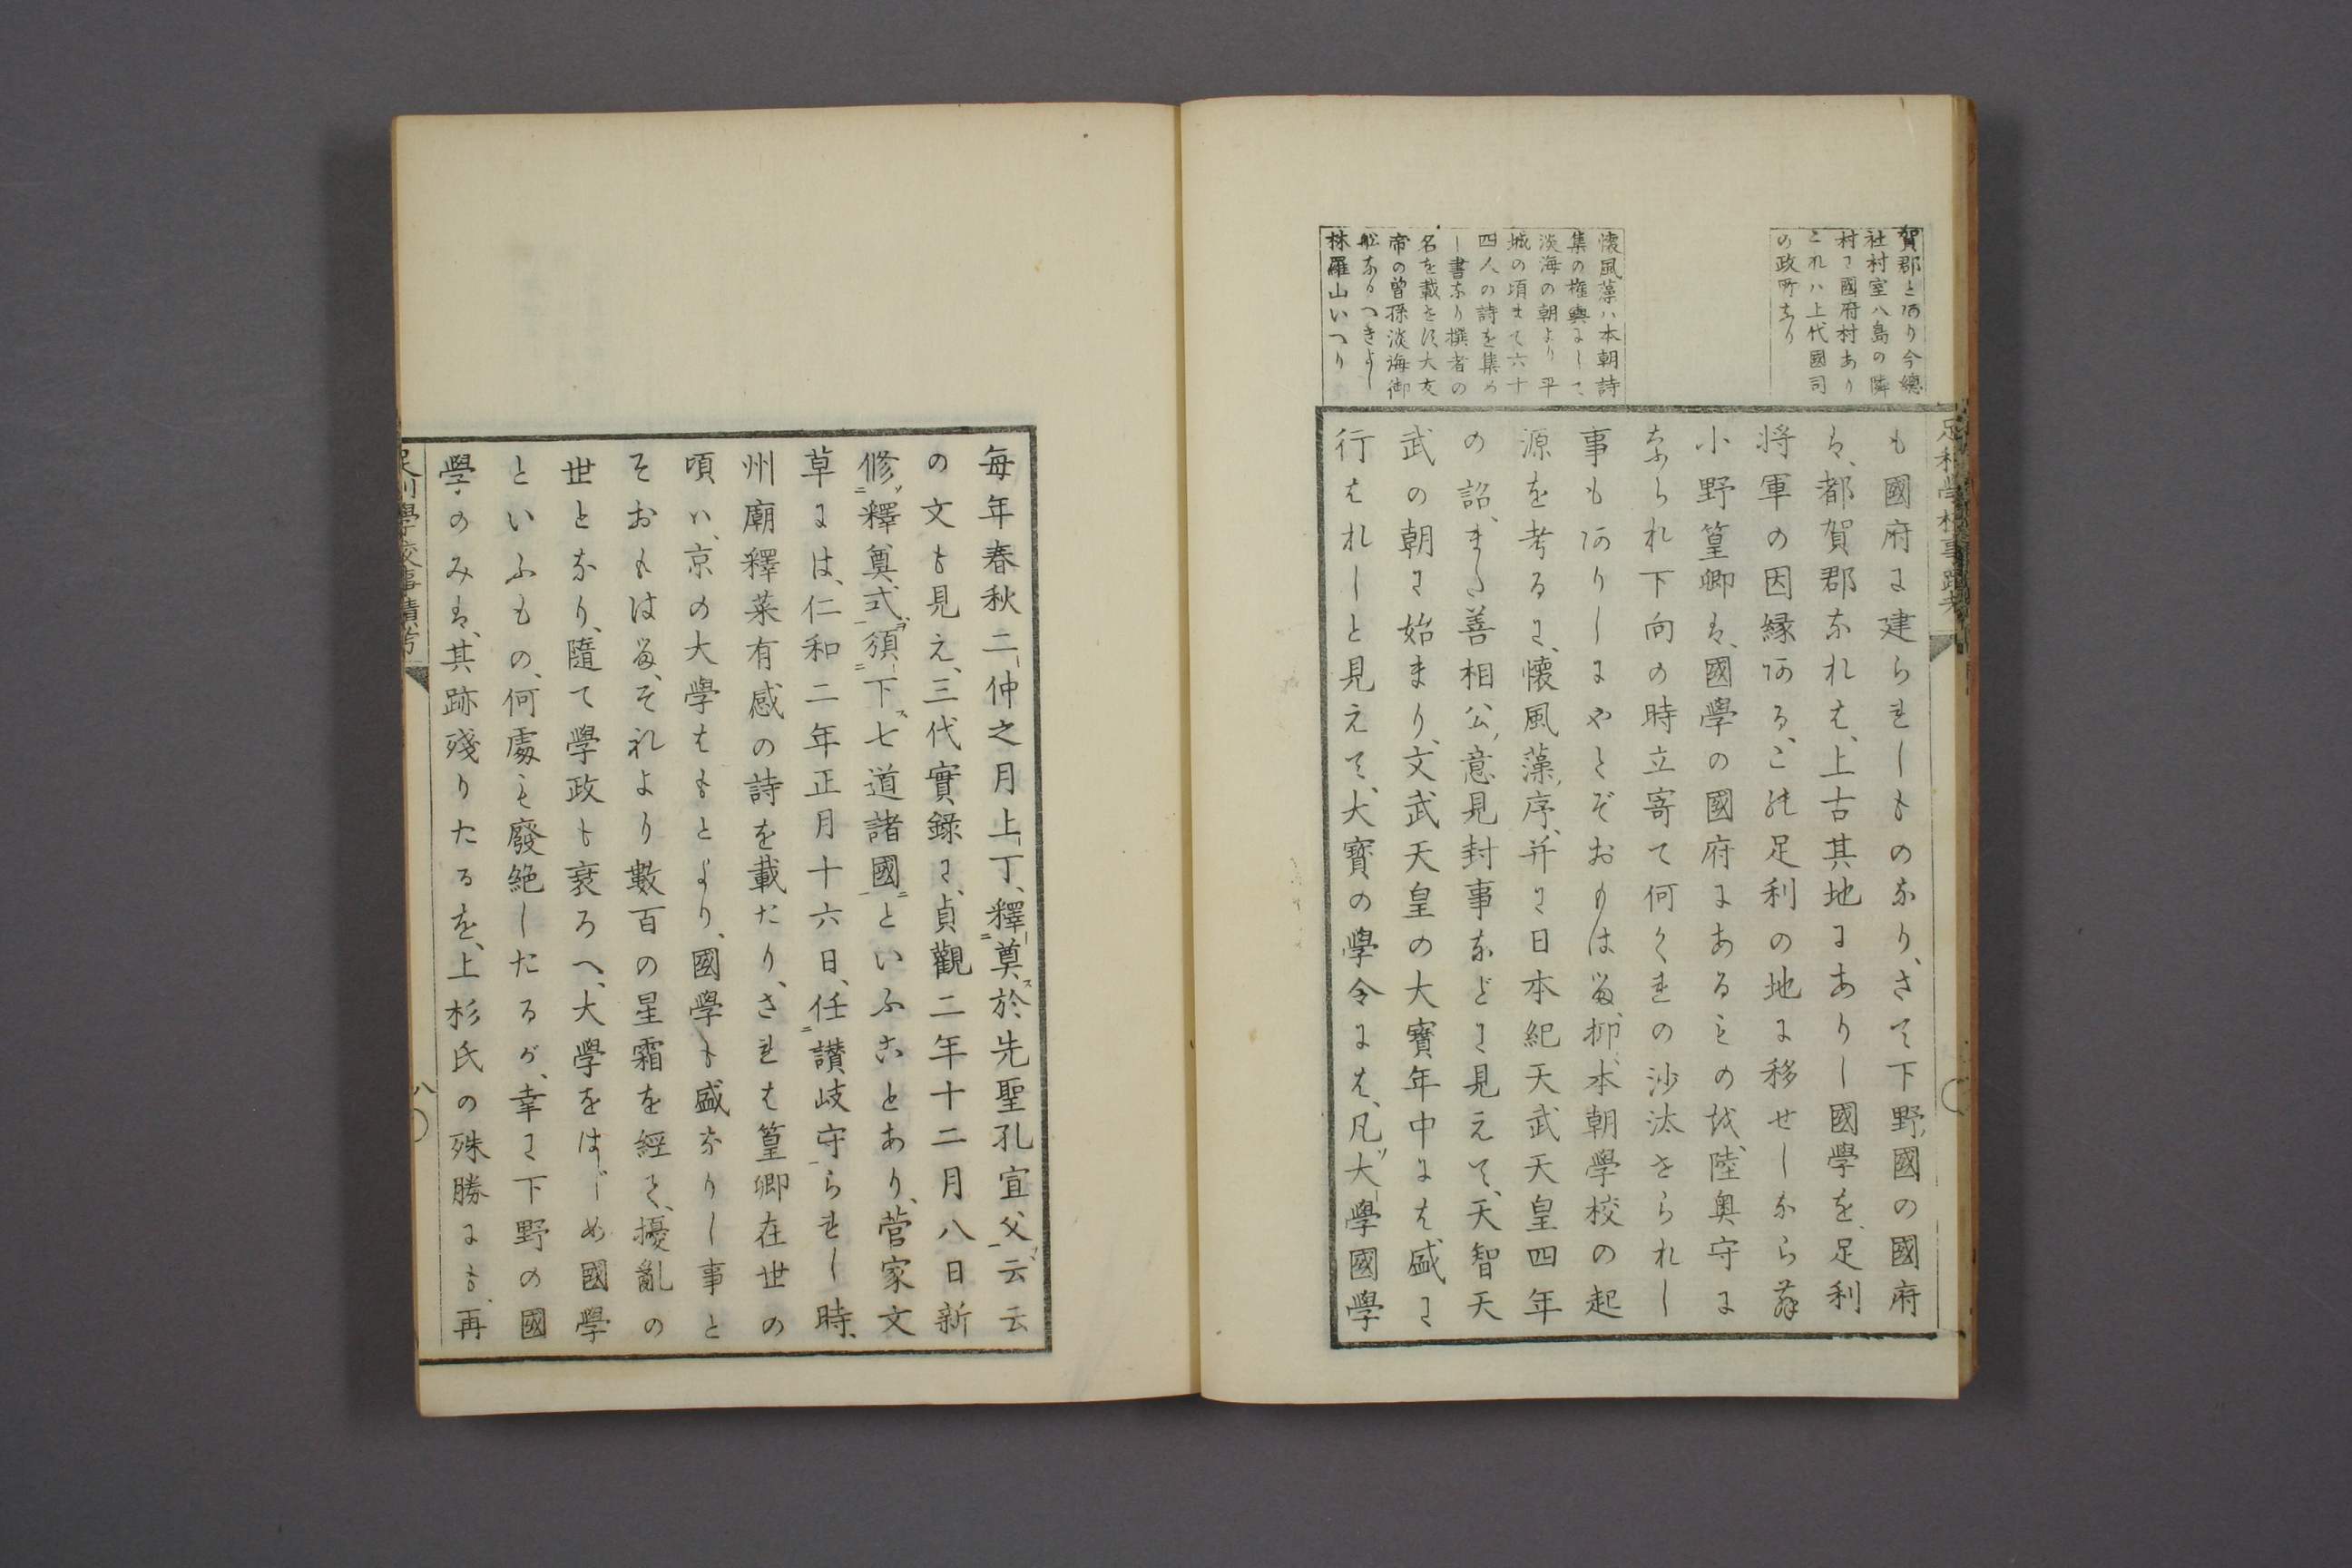 賀郡とあり今總
社村室八島の隣
村に國府村あり
これハ上代國司
の政所なり
懷風藻ハ本朝詩
集の權輿にして
淡海の朝より平
城の頃まて六十
四人の詩を集め
し書なり撰者の
名を載せす大友
帝の曾孫淡海御
船なるへきよし
林羅山いへり
も國府に建られしものなり、さて下野國の國府
は、都賀郡なれは、上古其地にありし國學を、足利
將軍の因縁ある、この足利の地に移せしなら
小野篁卿は、國學の國府にあるもの故、陸奥守に
なられ下向の時立寄て何くれの沙汰せられし
事もありしにやとぞおもはる、抑、本朝學校の起
源を考るに、懷風藻序、并に日本紀天武天皇四年
の詔、また善相公意見封事などに見えて、天智天
武の朝に始まり、文武天皇の大寶年中には盛に
行はれしと見えて、大寶の學令には、凡大學國學
每年春秋二仲之月上丁、釋奠於先聖孔宣父云云
の文も見え、三代實録に、貞觀二年十二月八日新
修釋奠式、須下七道諸國といふことあり、菅家文
草には、仁和二年正月十六日、任讃岐守られし時、
州廟釋菜有感の詩を載たり、されは篁卿在世の
頃ハ、京の大學はもとより、國學も盛なりし事と
そおもはる、それより數百の星霜を經て、擾亂の
世となり、隨て學政も衰ろへ、大學をはじめ國學
といふもの、何處も廢絶したるが、幸に下野の國
學のみは、其跡殘りたるを、上杉氏の殊勝にも、再
足利學校事蹟考
八